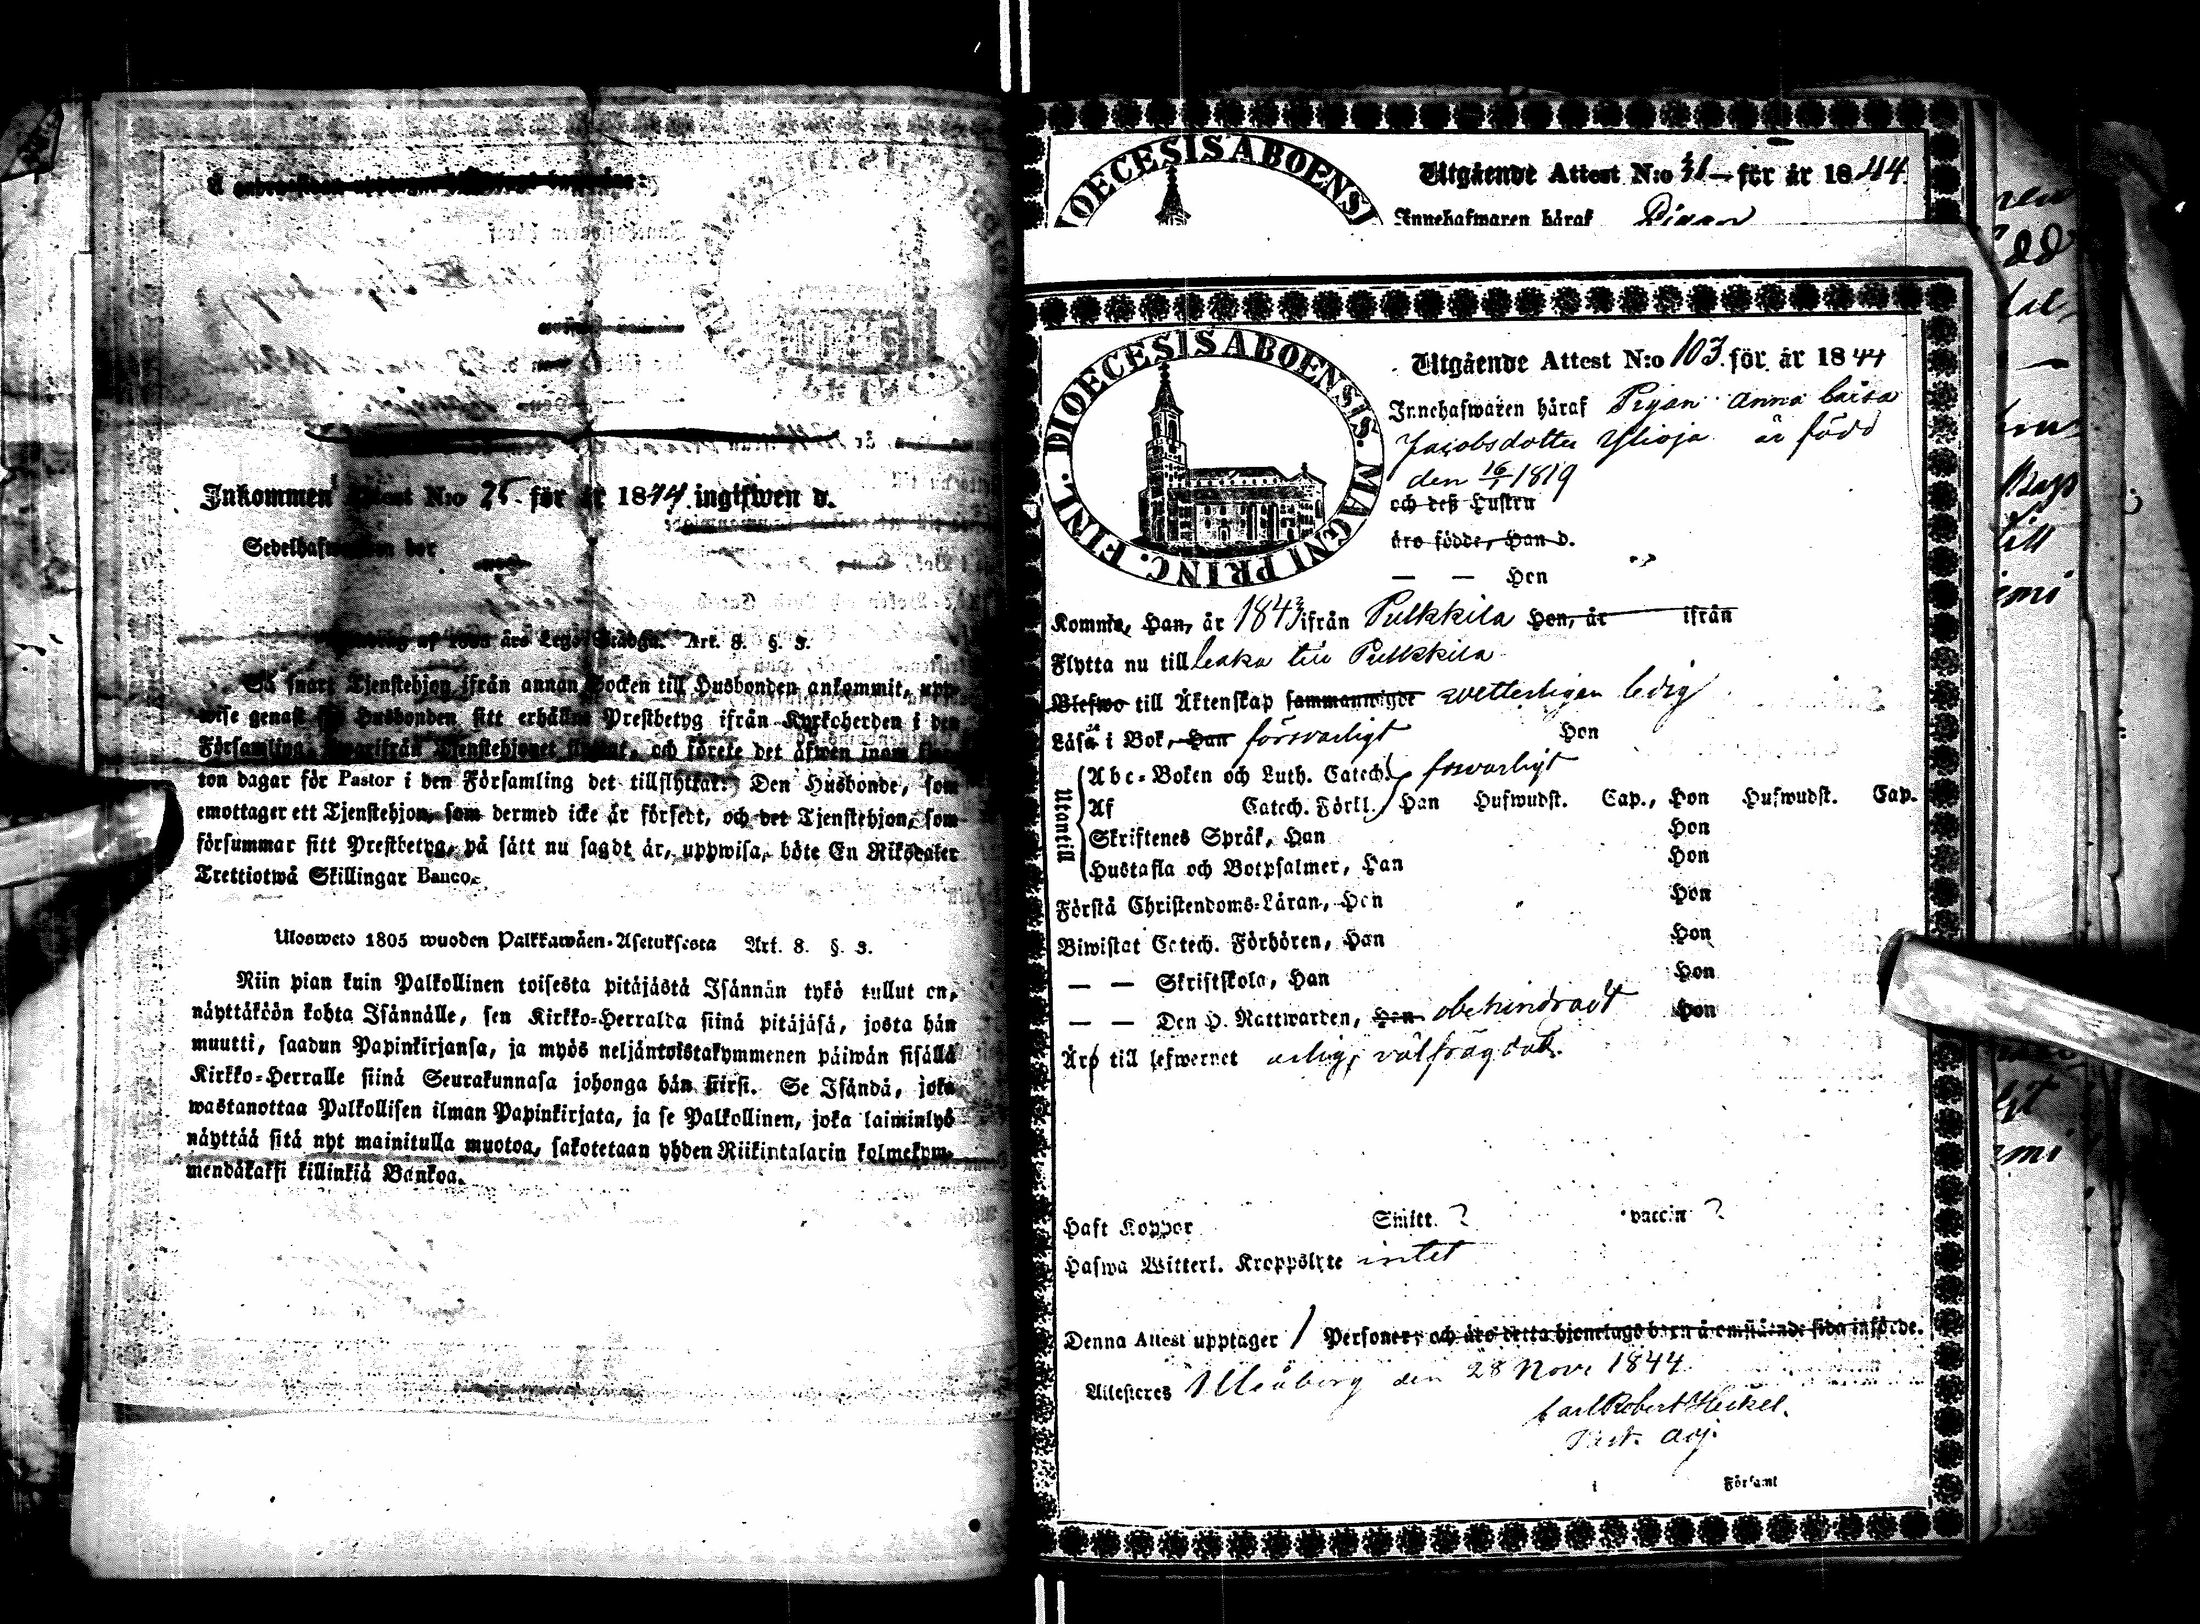 Inkommen Attest N:o 25 för år 1844 ingifwen d.
Sedelhafwaren bor
års Lego-Stadga. Art. 8. §. 3.
Så snart Tjenstehjon ifrån annan Socken till Husbonden ankommit, upp-
wise genast för Husbonden sitt erhållna Prestbetyg ifrån Kyrkoherden i den
Församling, hwarifrån Tjenstehjonet flyttat, och förete det äfwen inom fjor-
ton dagar för Pastor i den Församling det tillflyttat. Den Husbonde, som
emottager ett Tjenstehjon, som dermed icke är försedt, och det Tjenstehjon, som
försummar sitt Prestbetyg, på sätt nu sagdt är, uppwisa, böte En Riksdaler
Trettiotwå Skillingar Banco.
Ulosweto 1805 wuoden Palkkawäen-Asetuksesta Art. 8. §. 3.
Niin pian kuin Palkollinen toisesta pitäjästä Isännän tykö tullut on,
näyttäköön kohta Isännälle, sen Kirkko-Herralda siinä pitäjäsä, josta hän
muutti, saadun Papinkirjansa, ja myös neljäntoistakymmenen päiwän sisällä
Kirkko-Herralle siinä Seurakunnasa johonga hän siirsi. Se Isändä, joka
wastanottaa Palkollisen ilman Papinkirjata, ja se Palkollinen, joka laiminlyö
näyttää sitä nyt mainitulla muotoa, sakotetaan yhden Riikintalarin kolmekym-
mendäkaksi killinkiä Bankoa.
DIOECESIS ABOENSI
Utgående Attest N:o 31 för år 1844
Innehafwaren häraf Pigan
FINL. DIOECESIS ABOENSIS. MAGNI PRINC.
Utgående Attest N:o 103 för år 1844
Innehafwaren häraf Pigan Anna Caisa
Jacobsdotter Ylioja är född
den 16/1 1819
och deß Hustru
äro födde, Han d.
— — Hon
Komne, Han, år 1843 ifrån Pulkkila Hon, år ifrån
Flytta nu till baka till Pulkkila
Blefwo till Äktenskap sammanwigde wetterligen ledig
Läsa i Bok, Han försvarligt Hon
Utantill
Abc-Boken och Luth. Catech. försvarligt
Af Catech. Förkl. Han Hufwudst. Cap., Hon Hufwudst. Cap.
Skriftenes Språk, Han Hon
Hustafla och Botpsalmer, Han Hon
Förstå Christendoms-Läran, Han Hon
Biwistat Catech. Förhören, Han Hon
— — Skriftskola, Han Hon
— — Den H. Nattwarden, Han obehindradt Hon
Äro till lefwernet ärlig, välfrägdad.
Haft Koppor Smitt. ? vaccin ?
Hafwa Witterl. Kroppslyte intet
Denna Attest upptager 1 Personer, och äro detta hjonelags barn å omstående sida införde.
Attesteres Uleåborg den 28 Nov. 1844
Carl Robert Heikel.
Past. Adj.
i Församl